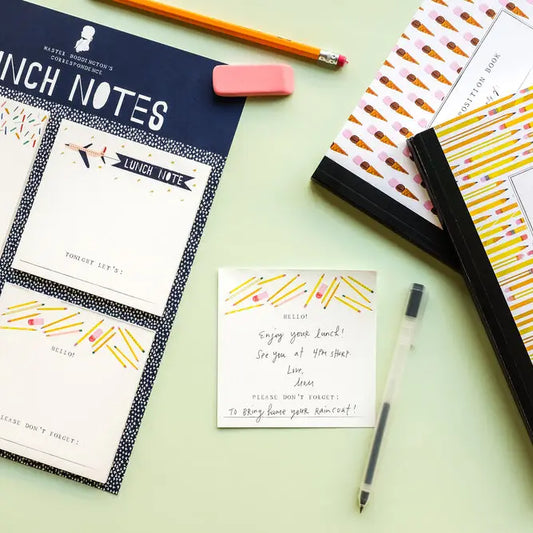 MASTER BODDINGTON'S
CORRESPONDENCE
UNCH NOTES
LUNCH NOTE
TONIGHT LET'S:
HELLO!
PLEASE DON'T FORGET:
HELLO!
Enjoy your lunch!
See you at 4pm sharp.
Love,
PLEASE DON'T FORGET:
To bring home your raincoat!
POSITION BOOK
OSITION BOOK